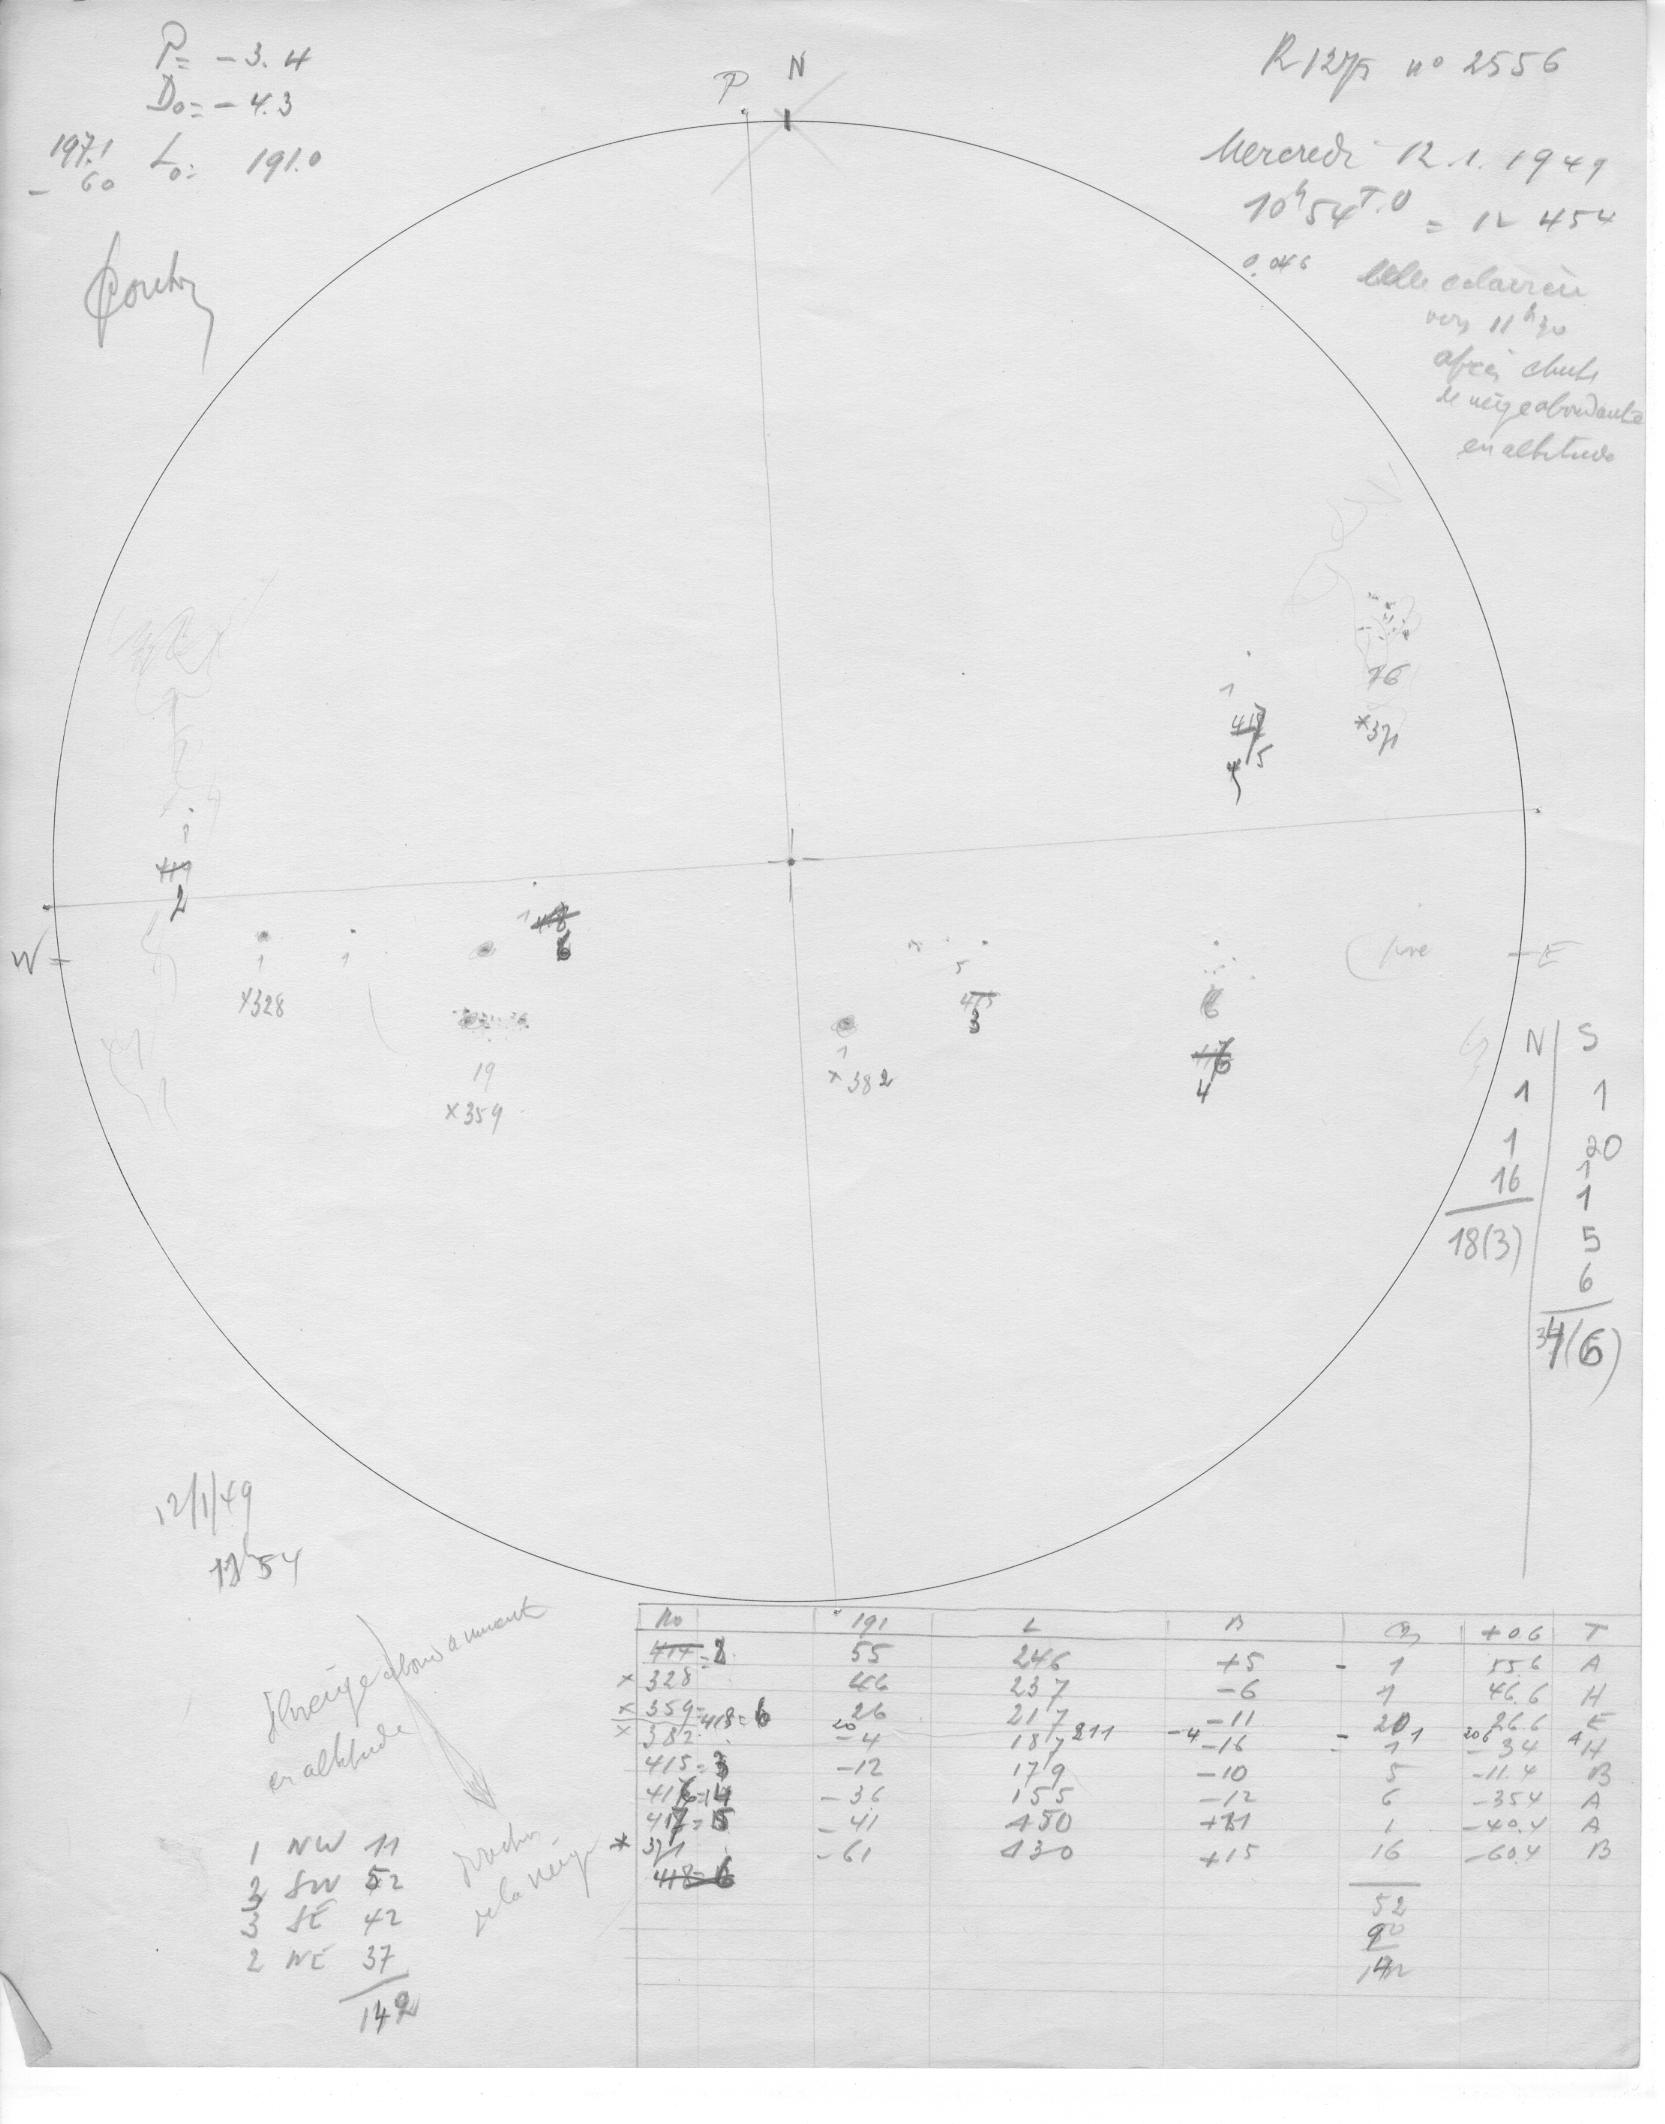 P= -3.4
D₀= -4.3
197.1 L₀= 191.0
- 60
P N
R 1275 n° 2556
Mercredi 12.1.1949
10h54 T.U = 12 454
0.046
belle éclaircie
vers 11h30
après chute
de neige abondante
en altitude
1
16
×371
417
5
1
2
1
418
6
W
1
×328
1
19
×359
5
415
3
1
×382
6
416
4
E
N S
1 1
1 20
16 1
1
18(3) 5
6
34(6)
12/1/49
11h54
Il neige abondamment
en altitude
de la neige
1 NW 11
3 SW 52
3 SE 42
2 NE 37
142
No 191 L B +0.6 T
414=2 55 246 +5 - 1 55.6 A
×328 46 237 -6 1 46.6 H
×359 26 217 -11 20 26.6 E
418=6 20 211 -4 - 1 20.6 A
×382 -4 187 -16 1 -3.4 H
415=3 -12 179 -10 5 -11.4 B
416=4 -36 155 -12 6 -35.4 A
417=5 -41 150 +11 1 -40.4 A
*371 -61 130 +15 16 -60.4 B
418=6
52
90
142